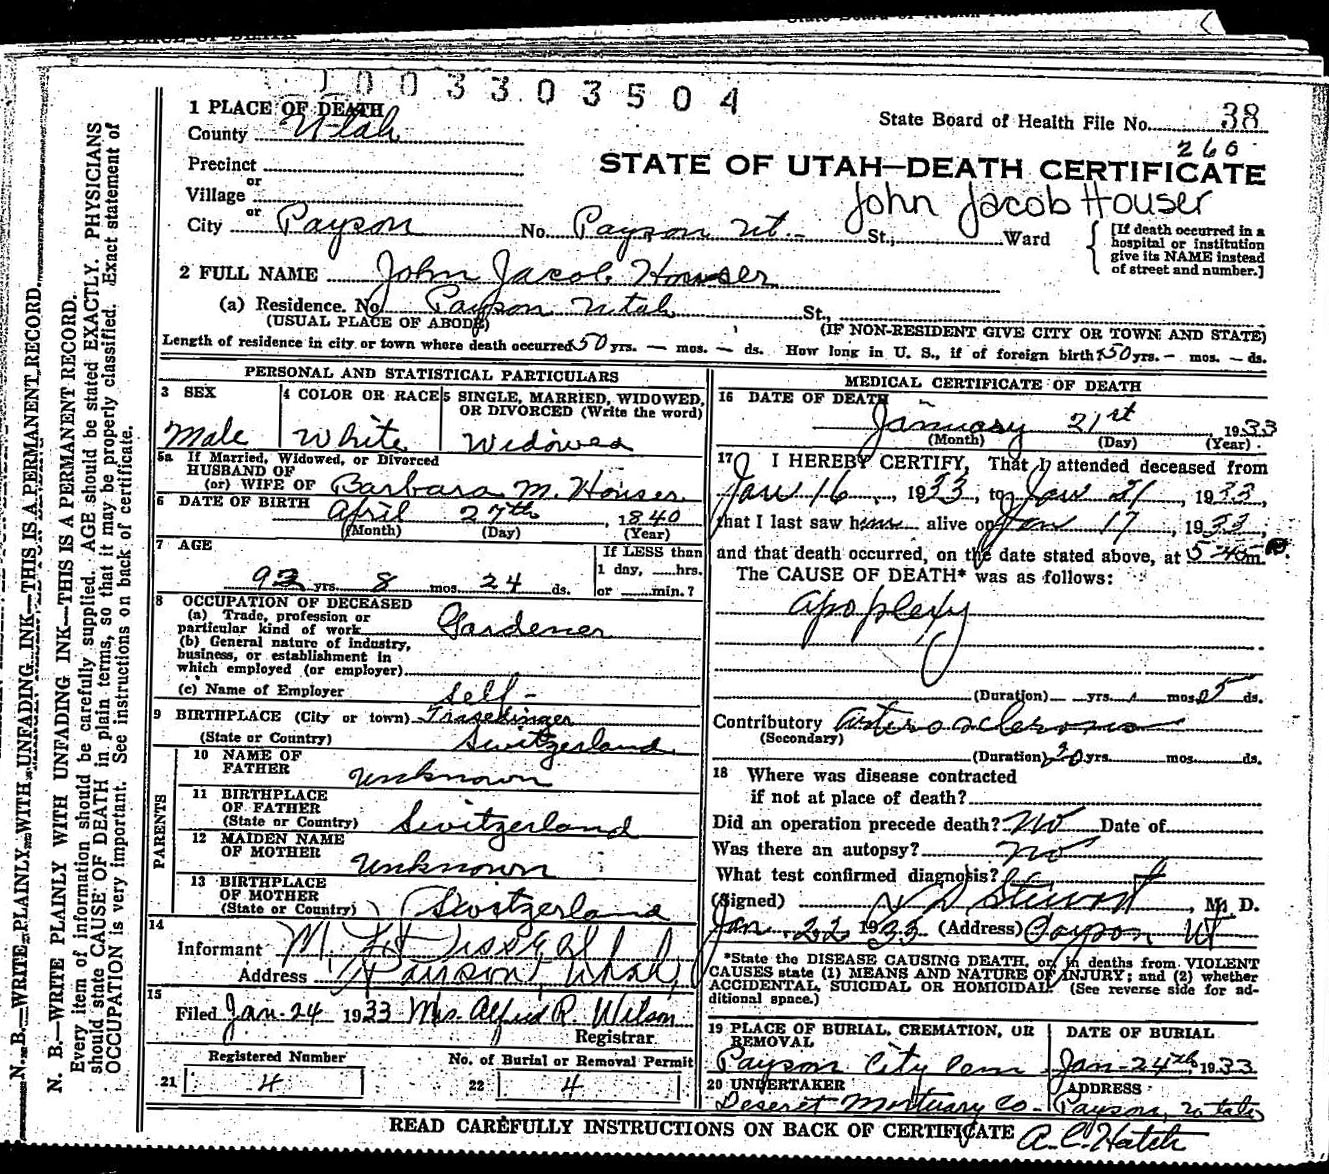 1003303504
State Board of Health File No. 38
260
1 PLACE OF DEATH
County Utah
Precinct
or
Village
or
City Payson No. Payson Ut. St.; Ward
STATE OF UTAH—DEATH CERTIFICATE
John Jacob Houser
[If death occurred in a
hospital or institution
give its NAME instead
of street and number.]
2 FULL NAME John Jacob Houser
(a) Residence. No. Payson Utah St.,
(USUAL PLACE OF ABODE) (IF NON-RESIDENT GIVE CITY OR TOWN AND STATE)
Length of residence in city or town where death occurred 50 yrs. — mos. — ds. How long in U. S., if of foreign birth? 50 yrs. — mos. — ds.
PERSONAL AND STATISTICAL PARTICULARS
3 SEX
Male
4 COLOR OR RACE
White
5 SINGLE, MARRIED, WIDOWED,
OR DIVORCED (Write the word)
Widowed
5a If Married, Widowed, or Divorced
HUSBAND OF
(or) WIFE OF Barbara M. Houser
6 DATE OF BIRTH April 27th, 1840
(Month) (Day) (Year)
7 AGE
92 yrs. 8 mos. 24 ds.
If LESS than
1 day, hrs.
or min.?
8 OCCUPATION OF DECEASED
(a) Trade, profession or
particular kind of work Gardener
(b) General nature of industry,
business, or establishment in
which employed (or employer)
(c) Name of Employer Self-
9 BIRTHPLACE (City or town)
(State or Country) Switzerland
PARENTS
10 NAME OF
FATHER Unknown
11 BIRTHPLACE
OF FATHER
(State or Country) Switzerland
12 MAIDEN NAME
OF MOTHER Unknown
13 BIRTHPLACE
OF MOTHER
(State or Country) Switzerland
14
Informant
Address Payson, Utah
15
Filed Jan-24 1933 Mrs Alfred R. Wilson
Registrar
Registered Number
21 4
No. of Burial or Removal Permit
22 4
MEDICAL CERTIFICATE OF DEATH
16 DATE OF DEATH
January 21st 1933
(Month) (Day) (Year)
17 I HEREBY CERTIFY, That I attended deceased from
Jan 16, 1933, to Jan 21, 1933,
that I last saw him alive on Jan 17, 1933,
and that death occurred, on the date stated above, at 5-45 m.
The CAUSE OF DEATH* was as follows:
Apoplexy
(Duration) yrs. mos. 5 ds.
Contributory Arteriosclerosis
(Secondary)
(Duration) 20 yrs. mos. ds.
18 Where was disease contracted
if not at place of death?
Did an operation precede death? No Date of
Was there an autopsy? No
What test confirmed diagnosis?
(Signed) Stewart, M. D.
Jan. 22 1933 (Address) Payson Ut
*State the DISEASE CAUSING DEATH, or, in deaths from VIOLENT
CAUSES state (1) MEANS AND NATURE OF INJURY; and (2) whether
ACCIDENTAL, SUICIDAL OR HOMICIDAL. (See reverse side for ad-
ditional space.)
19 PLACE OF BURIAL, CREMATION, OR
REMOVAL
Payson City Cem
DATE OF BURIAL
Jan-24th 1933
20 UNDERTAKER
Deseret Mortuary Co-
ADDRESS
Payson, Utah
READ CAREFULLY INSTRUCTIONS ON BACK OF CERTIFICATE A. C. Hatch
N. B.—WRITE PLAINLY WITH UNFADING INK—THIS IS A PERMANENT RECORD.
N. B.—WRITE PLAINLY WITH UNFADING INK—THIS IS A PERMANENT RECORD.
Every item of information should be carefully supplied. AGE should be stated EXACTLY. PHYSICIANS
should state CAUSE OF DEATH in plain terms, so that it may be properly classified. Exact statement of
OCCUPATION is very important. See instructions on back of certificate.